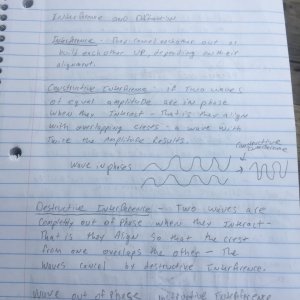 Interference and Diffraction
Interference - They cancel eachother out or
build eachother up depending on their
alignment.
Constructive Interference - if two waves
of equal amplitude are in phase
when they interact - that is they align
with overlapping crests - a wave with
twice the amplitude results.
Constructive
Interference
Wave in phases
Destructive Interference - Two waves are
completely out of phase when they interact -
that is they Align so that the crest
from one overlaps the other - The
waves cancel by destructive Interference.
Wave out of phase Destructive Interference